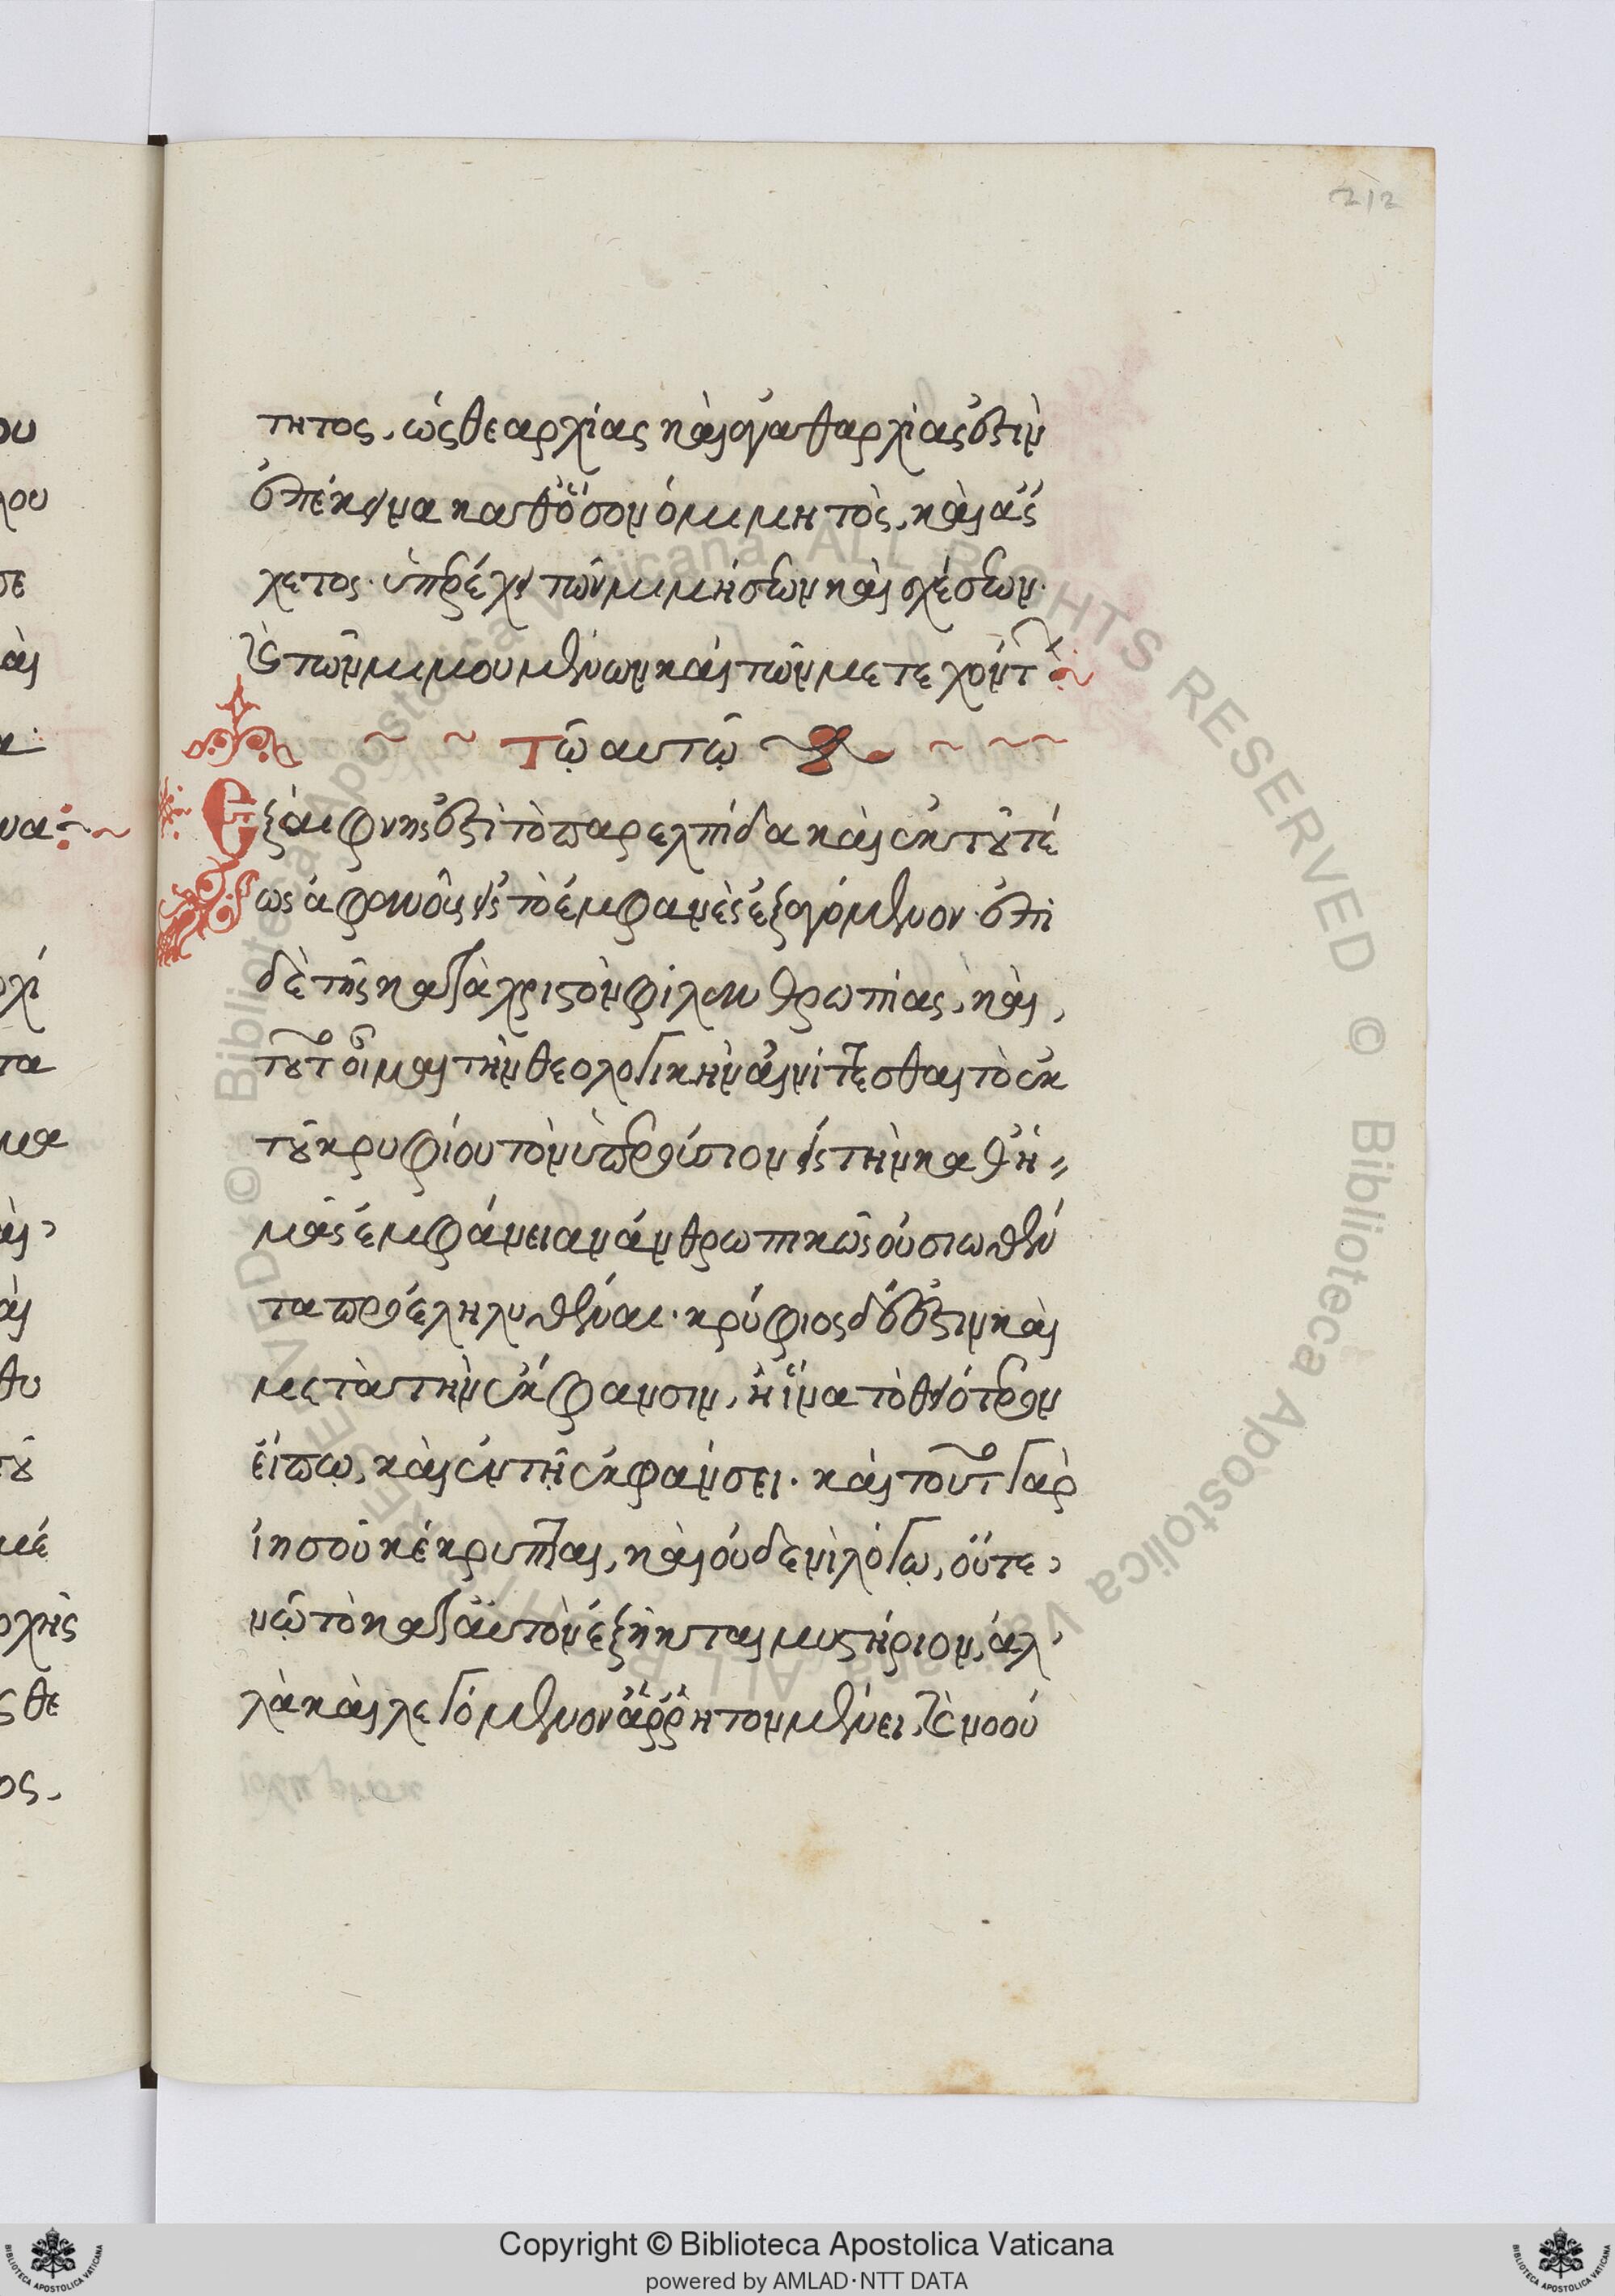 212
τητος, ὡς θεαρχίας καὶ ἀγαθαρχίας ἐστὶν
ἐπέκεινα καθόσον ὁ ἀμίμητος, καὶ ἄς
χετος ὑπερέχει τῶν μιμήσεων καὶ σχέσεων·
καὶ τῶν μιμουμένων καὶ τῶν μετεχόντων
Τῷ αυτῷ
Εξαίφνης ἐστὶ τὸ παρ ελπίδα καὶ ἐκ τοῦ τέ
ως ἀφανοῦς εἰς τὸ ἐμφανὲς ἐξαγόμενον· ἐπὶ
δὲ τῆς κατὰ χριστὸν φιλανθρωπίας, καὶ,
τοῦτο οἶμαι τὴν θεολογικὴν αἰνίττεσθαι τὸ ἐκ
τοῦ κρυφίου τὸν ὑπερούσιον εἰς τὴν καθ ἡ〃
μᾶς ἐμφάνειαν ἀνθρωπικῶς οὐσιωθέν
τα προεληλυθέναι· κρύφιος δέ ἐστιν καὶ
μετὰ τὴν ἔκφανσιν, ἢ ἵνα τὸ θειότερον
εἴπω, καὶ ἐν τῇ ἐκφάνσει· καὶ τοῦτο γὰρ
ἰησοῦ κέκρυπται, καὶ οὐδενὶ λόγῳ, οὔτε,
νῷ τὸ κατ αὐτὸν ἐξῆκται μυστήριον, ἀλ,
λὰ καὶ λεγόμενον ἄρρητον μένει, καὶ νοού
Copyright © Biblioteca Apostolica Vaticana
powered by AMLAD·NTT DATA